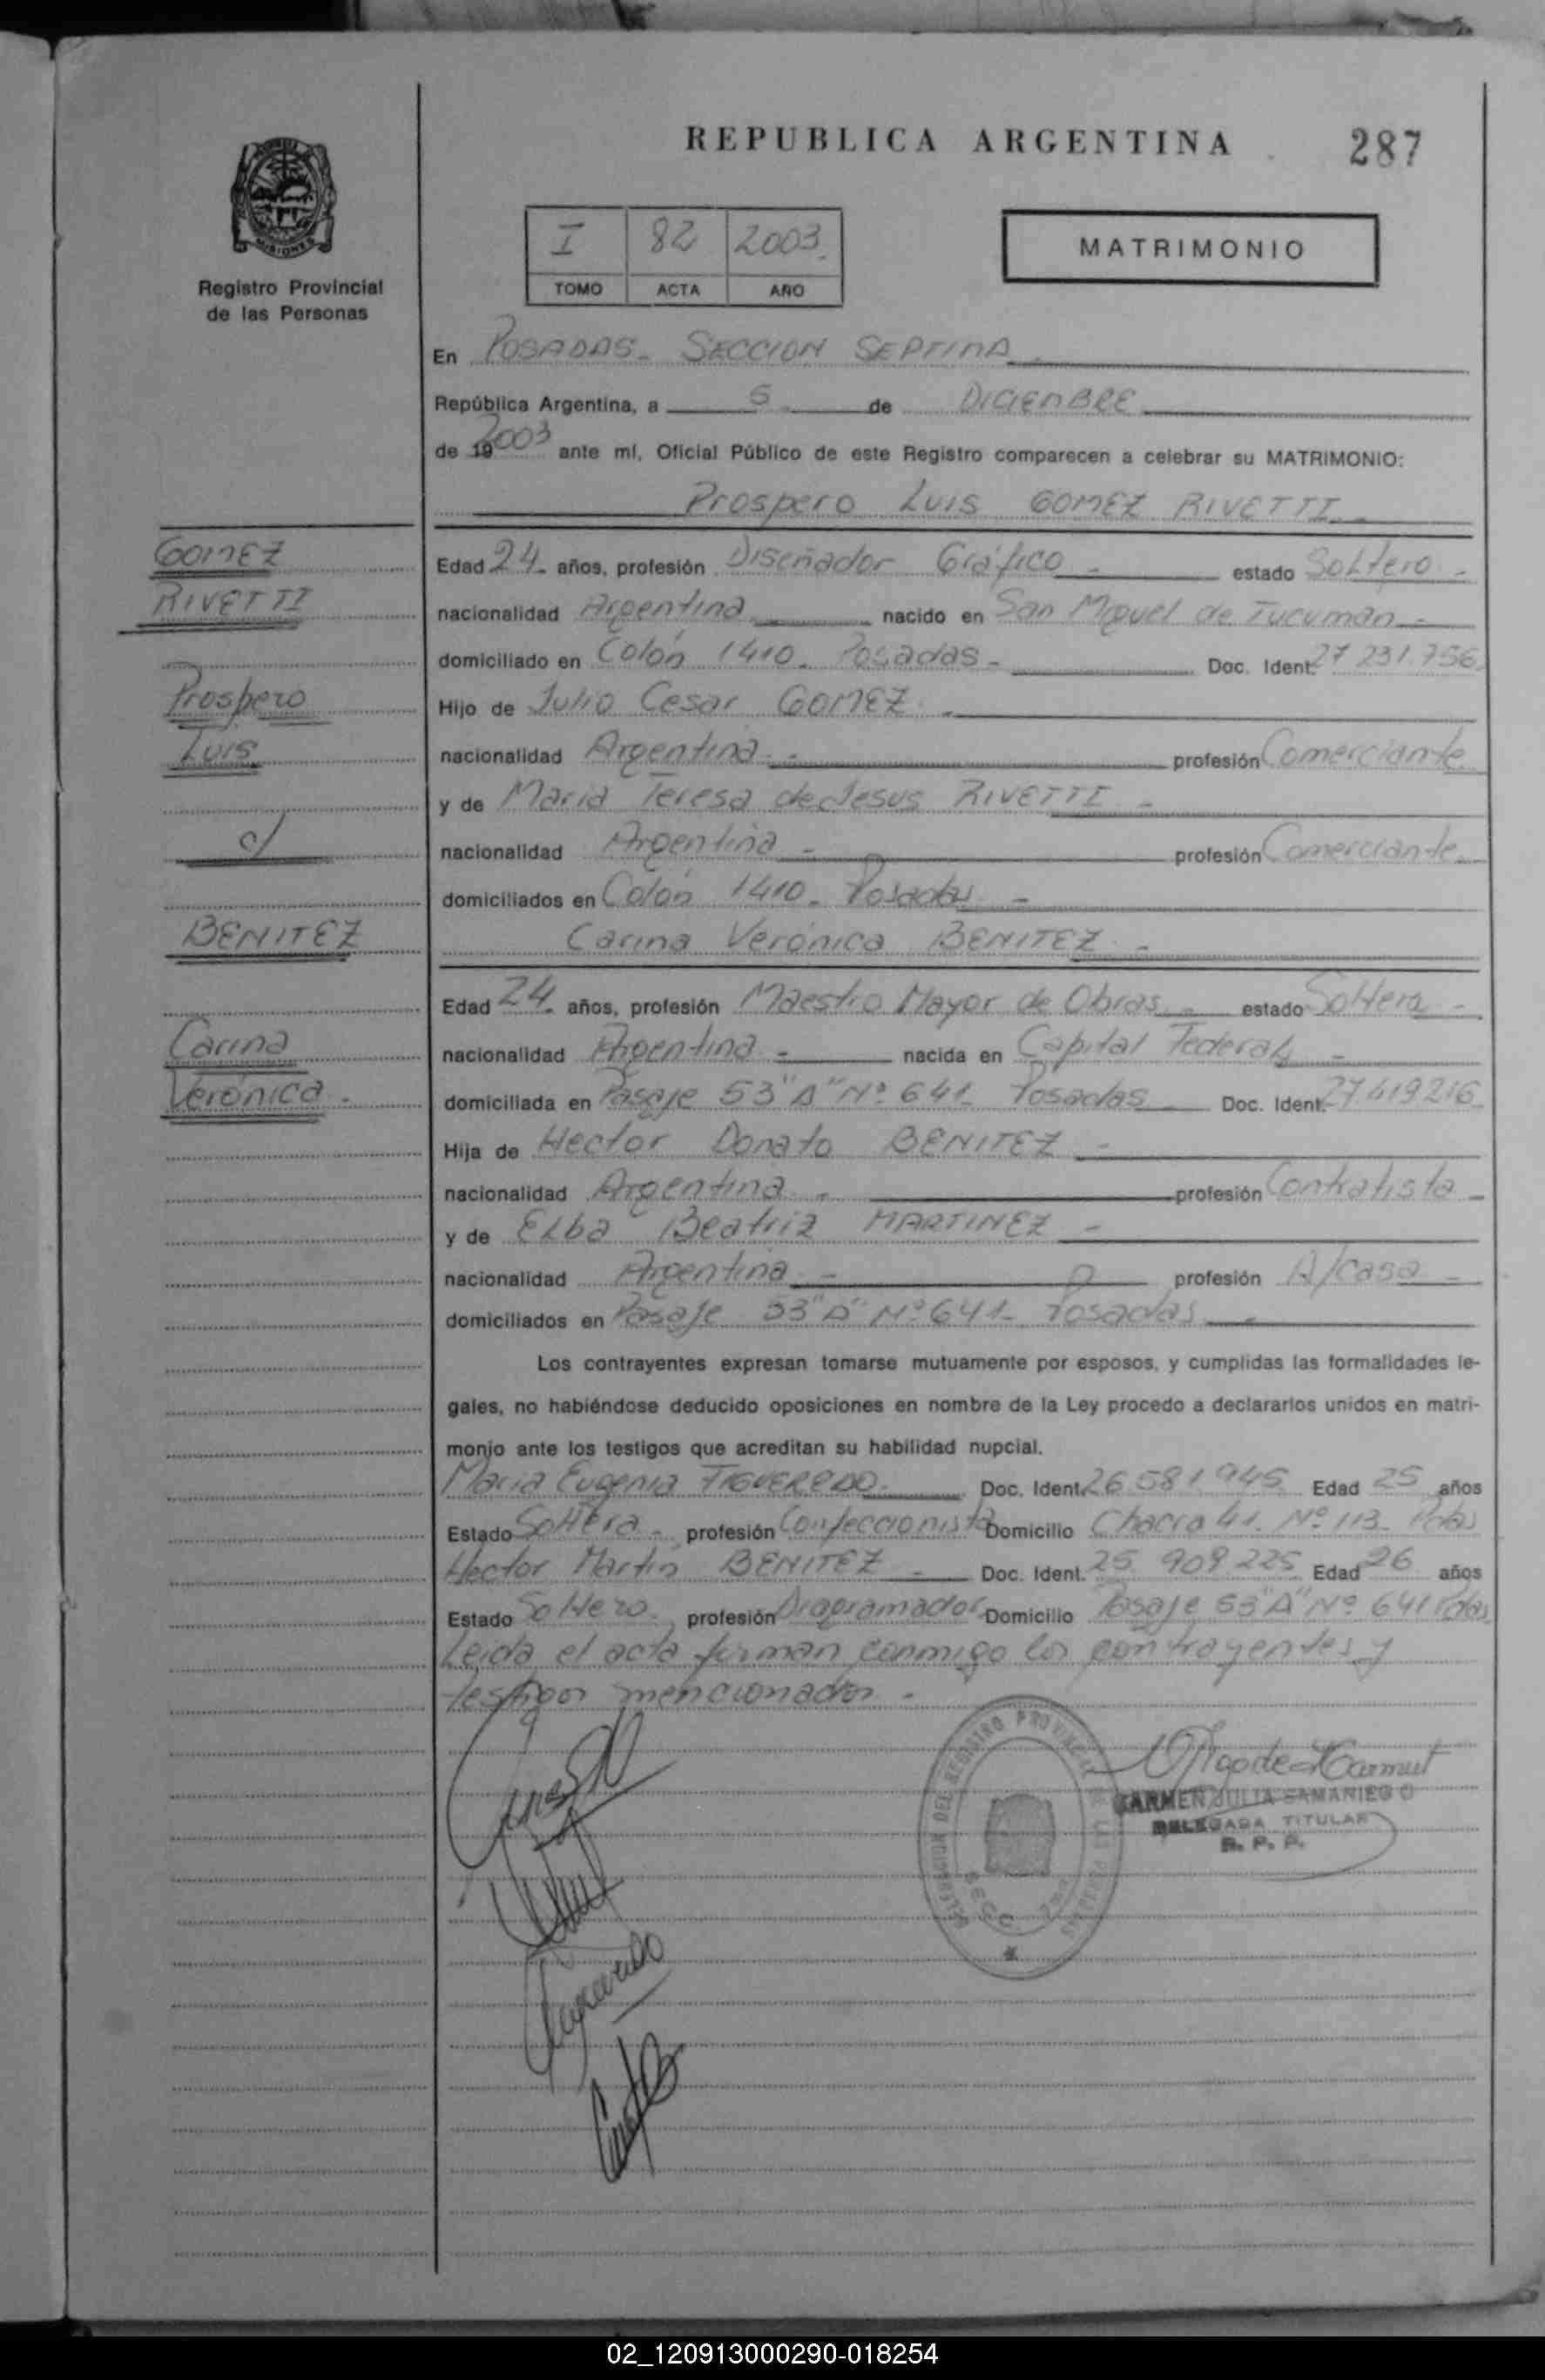 REPUBLICA ARGENTINA
287
MISIONES
Registro Provincial
de las Personas
I 82 2003
TOMO ACTA AÑO
MATRIMONIO
En POSADAS - SECCION SEPTIMA
República Argentina, a 5 de DICIEMBRE
de 19 2003 ante mí, Oficial Público de este Registro comparecen a celebrar su MATRIMONIO:
Prospero Luis GOMEZ RIVETTI
GOMEZ
RIVETTI
Prospero
Luis
c/
BENITEZ
Carina
Verónica -
Edad 24 - años, profesión Diseñador Gráfico - estado Soltero -
nacionalidad Argentina nacido en San Miguel de Tucuman -
domiciliado en Colón 1410 - Posadas - Doc. Ident. 27 231.756
Hijo de Julio Cesar GOMEZ -
nacionalidad Argentina - profesión Comerciante
y de Maria Teresa de Jesus RIVETTI -
nacionalidad Argentina - profesión Comerciante
domiciliados en Colón 1410 - Posadas -
Carina Verónica BENITEZ -
Edad 24 - años, profesión Maestro Mayor de Obras - estado Soltera -
nacionalidad Argentina - nacida en Capital Federal -
domiciliada en Pasaje 53 "A" Nº 641 - Posadas Doc. Ident. 27.419216
Hija de Hector Donato BENITEZ -
nacionalidad Argentina - profesión Contratista -
y de Elba Beatriz MARTINEZ -
nacionalidad Argentina - profesión A/casa -
domiciliados en Pasaje 53 "A" Nº 641 - Posadas -
Los contrayentes expresan tomarse mutuamente por esposos, y cumplidas las formalidades le-
gales, no habiéndose deducido oposiciones en nombre de la Ley procedo a declararlos unidos en matri-
monio ante los testigos que acreditan su habilidad nupcial.
Maria Eugenia FIGUEREDO - Doc. Ident. 26 581 945 Edad 25 años
Estado Soltera - profesión Confeccionista Domicilio Chacra 41 - Nº 113 - Pdas
Hector Martin BENITEZ - Doc. Ident. 25 909 225 Edad 26 años
Estado Soltero profesión Diagramador Domicilio Pasaje 53 "A" Nº 641 Pdas
Leida el acta firman conmigo los contrayentes y
testigos mencionados -
CARMEN JULIA SAMANIEGO
DELEGADA TITULAR
R. P. P.
02_120913000290-018254